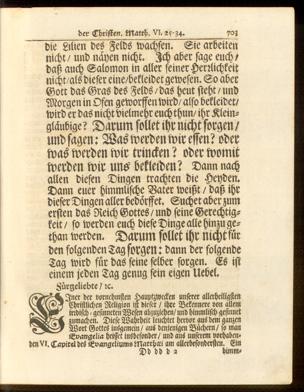 der Christen. Matth. VI. 25-34. 703
die Lilien des Felds wachsen. Sie arbeiten
nicht / und näyen nicht. Ich aber sage euch /
daß auch Salomon in aller seiner Herrlichkeit
nicht / als dieser eine / bekleidet gewesen. So aber
Gott das Gras des Felds / das heut steht / und
Morgen in Ofen geworffen wird / also bekleidet /
wird er das nicht vielmehr euch thun / ihr Klein-
gläubige? Darum sollet ihr nicht sorgen /
und sagen: Was werden wir essen? oder
was werden wir trincken? oder womit
werden wir uns bekleiden? Dann nach
allen diesen Dingen trachten die Heyden.
Dann euer himmlische Vater weißt / daß ihr
dieser Dingen aller bedörffet. Suchet aber zum
ersten das Reich Gottes / und seine Gerechtig-
keit / so werden euch diese Dinge alle hinzu ge-
than werden. Darum sollet ihr nicht für
den folgenden Tag sorgen: dann der folgende
Tag wird für das seine selber sorgen. Es ist
einem jeden Tag genug sein eigen Uebel.
Fürgeliebte / ic.
Einer der vornehmsten Hauptzwecken unserer allerheiligsten
Christlichen Religion ist dieser / ihre Bekennere von allem
irrdisch-gesinneten Wesen abzuziehen / und himmlisch gesinnet
zumachen. Diese Wahrheit leuchtet hervor aus dem ganzen
Wort Gottes insgemein / aus denjenigen Büchern / so man
Evangelia heisset insbesonder / und aus unserem vorhaben-
den VI. Capitel des Evangeliums Matthæi am allerbesondersten. Ein
Dd dd d 2 himm-